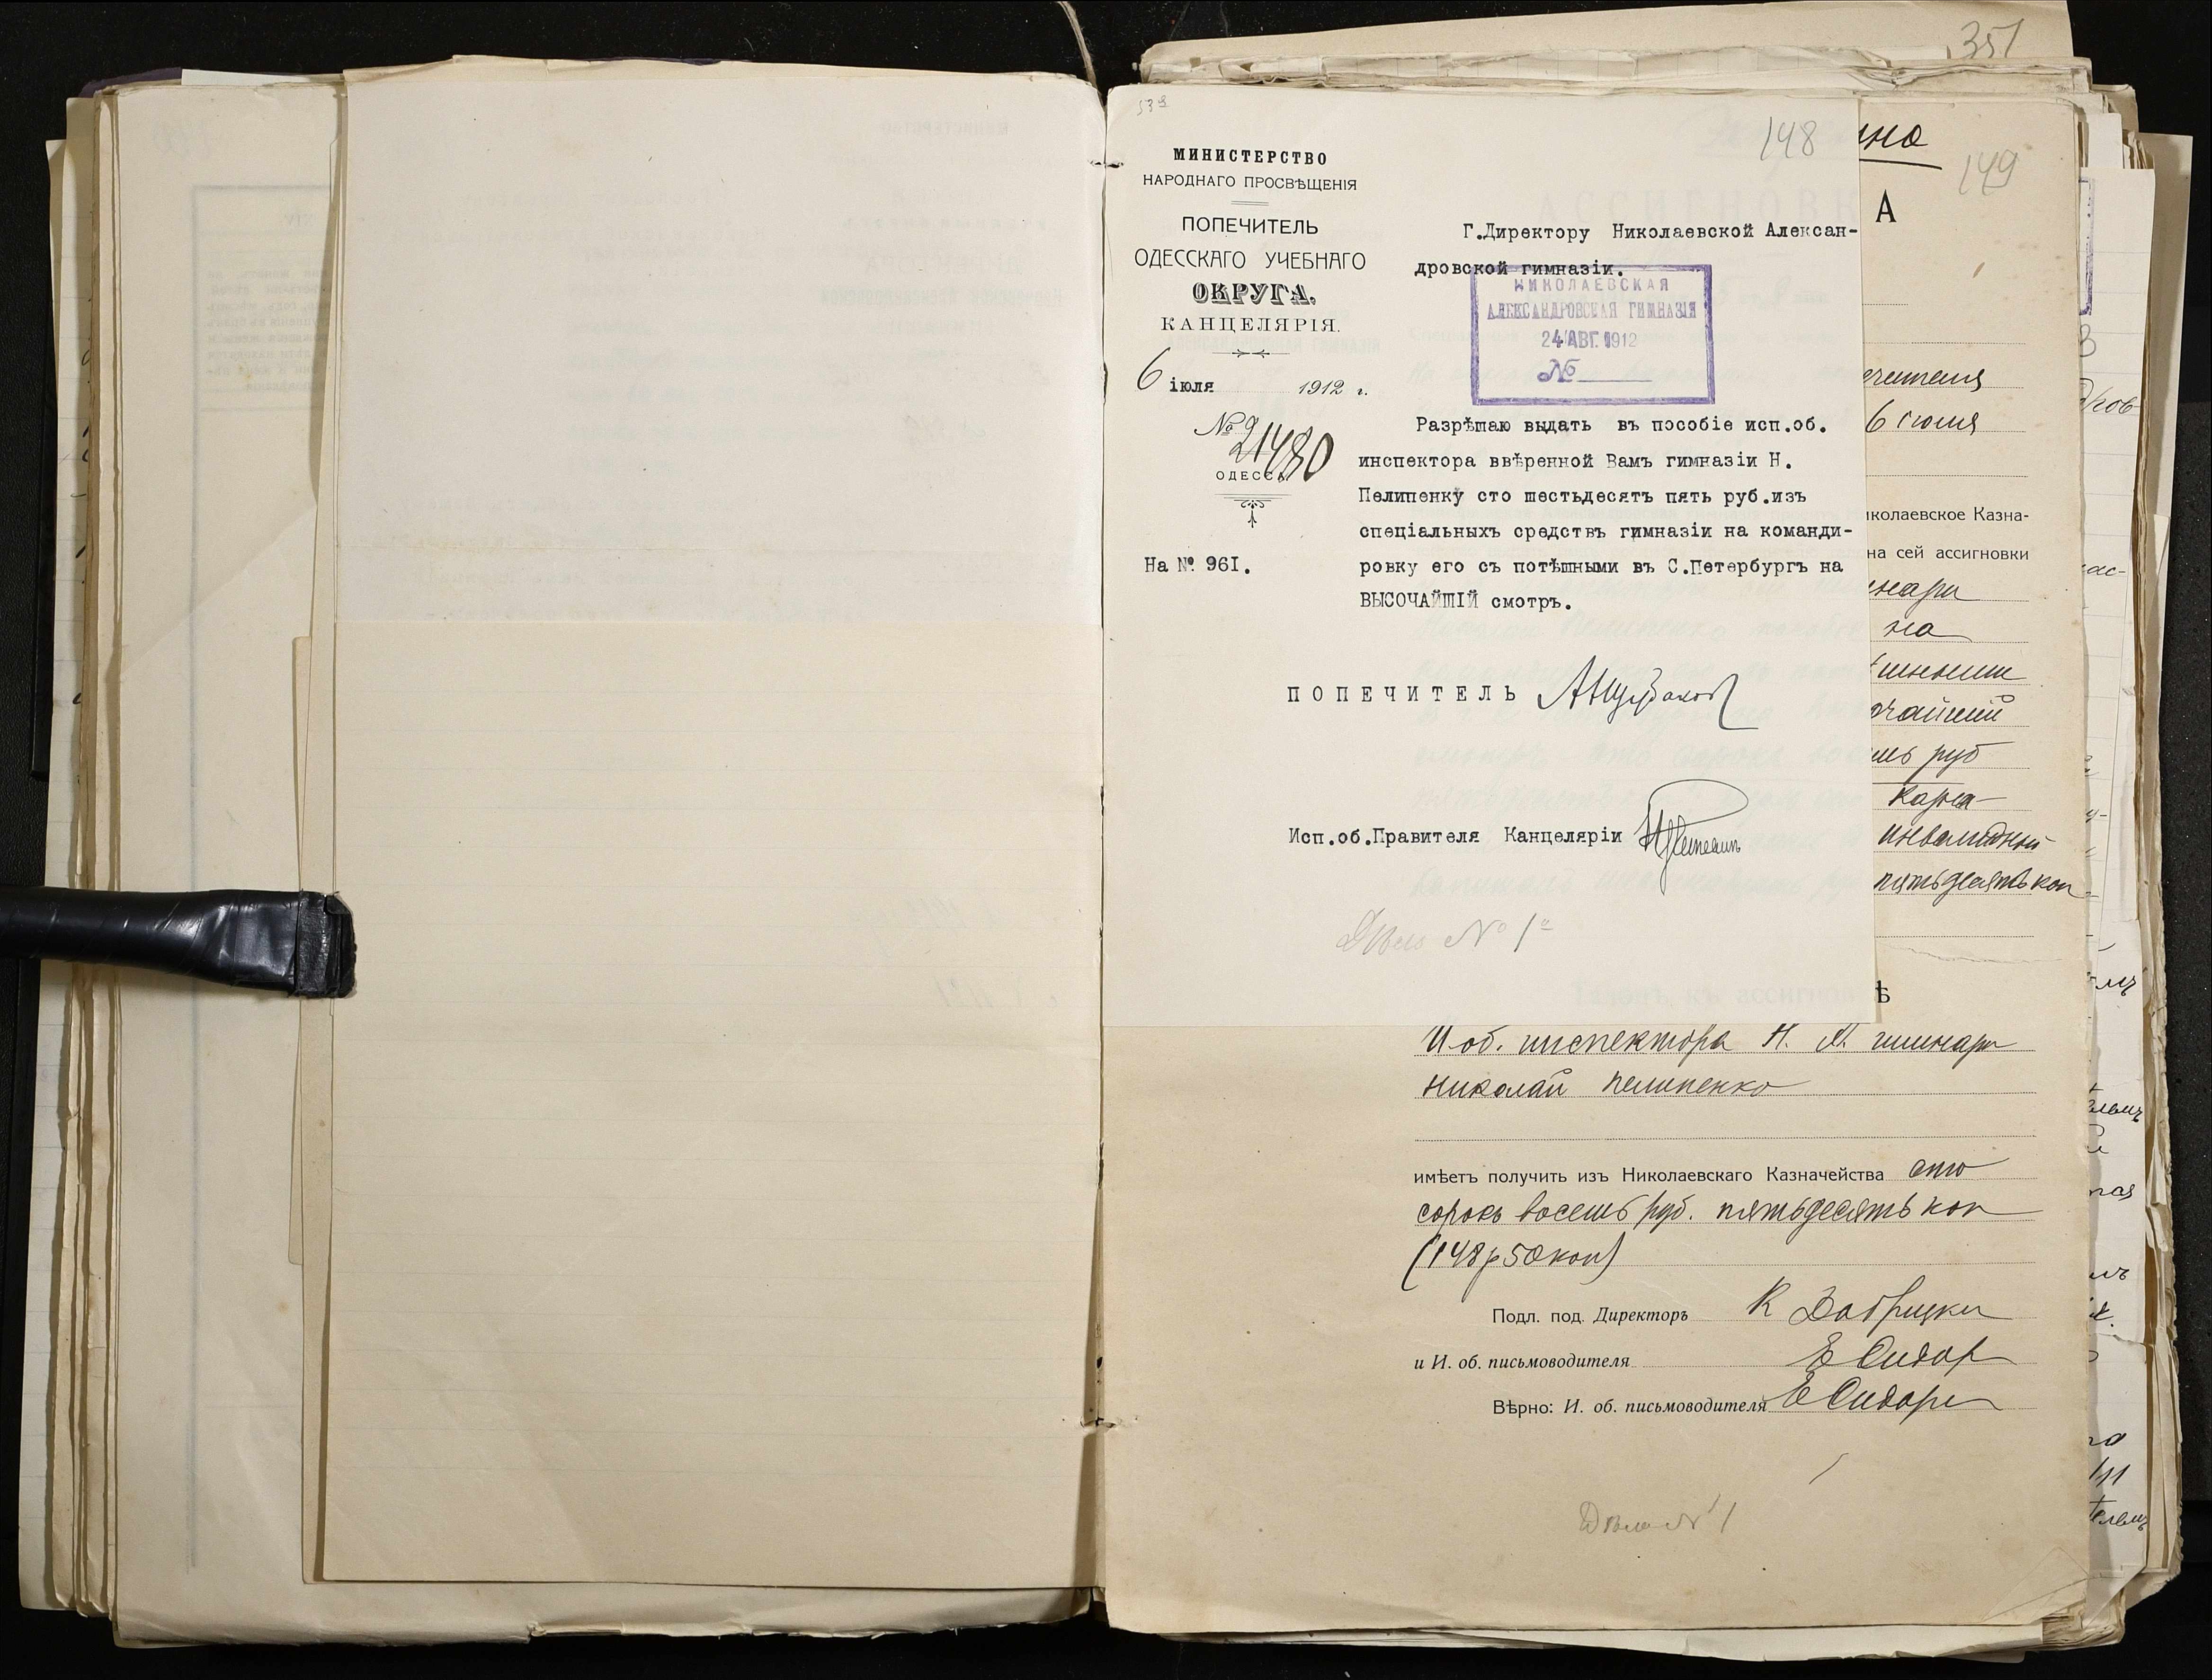 351
148
МИНИСТЕРСТВО
НАРОДНАГО ПРОСВѢЩЕНІЯ
ПОПЕЧИТЕЛЬ
ОДЕССКАГО УЧЕБНАГО
ОКРУГА.
КАНЦЕЛЯРІЯ.
6 іюля 1912 г.
№ 21480
ОДЕССА
На № 961.
Г.Директору Николаевской Алексан-
дровской гимназіи.
НИКОЛАЕВСКАЯ
АЛЕКСАНДРОВСКАЯ ГИМНАЗІЯ
24 АВГ. 1912
№
Разрѣшаю выдать въ пособіе исп.об.
инспектора ввѣренной Вамъ гимназіи Н.
Пелипенку сто шестьдесятъ пять руб.изъ
спеціальныхъ средствъ гимназіи на команди-
ровку его съ потѣшными въ С.Петербургъ на
ВЫСОЧАЙШІЙ смотръ.
ПОПЕЧИТЕЛЬ
Исп.об.Правителя Канцеляріи
Дѣло № 1
149
А
6 іюля
иколаевское Казна-
на сей ассигновки
на
руб
инвалидный
пятьдесятъ коп
ѣ
И об. инспектора Н. А. гимназіи
Николай Пелипенко
имѣетъ получить изъ Николаевскаго Казначейства сто
сорокъ восемь руб. пятьдесятъ коп
(148 р 50 коп)
Подл. под. Директоръ К
и И. об. письмоводителя Е Сидор
Вѣрно: И. об. письмоводителя Е Сидор
Дѣло № 1